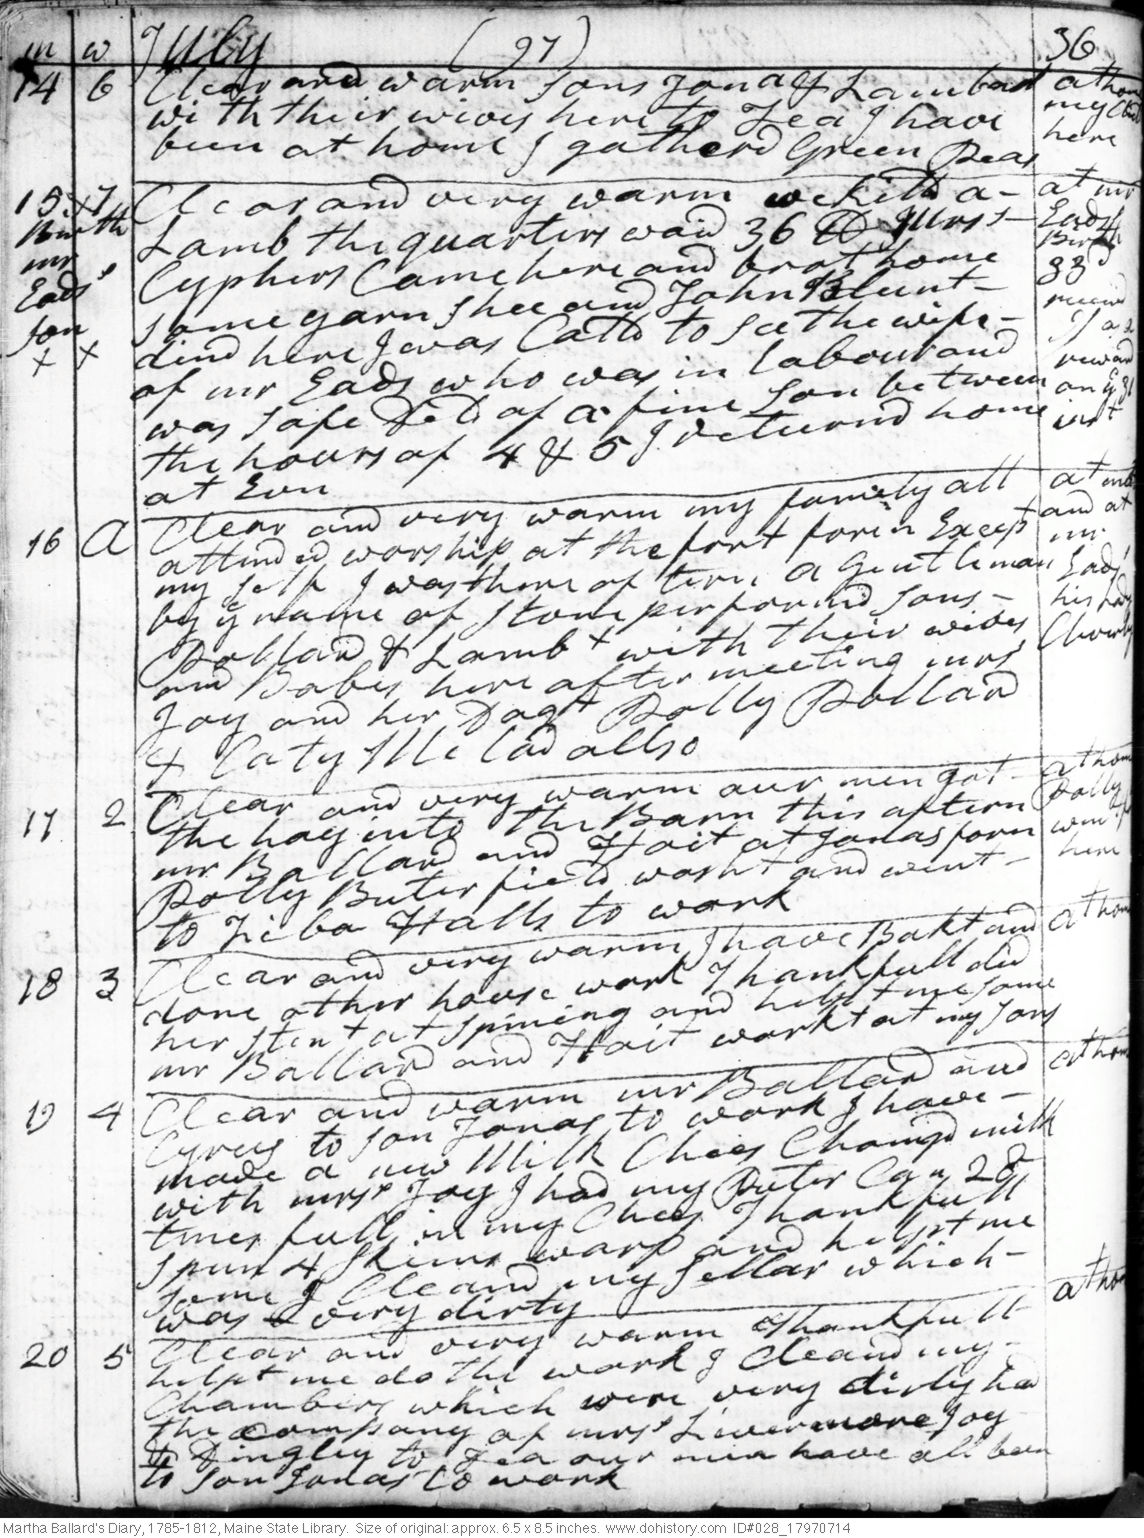 m w July (97) 36
14 6 Clear and warm Sons Jona & Lambard at home
with their wives here to Tea I have my Child
been at home I gatherd Green Peas here
15 x 7 Clear and very warm we killd a- at mr
Birth Lamb the quarters waid 36 lb mrs Eads
mr Cyphers Came here and brot home Birth
Eads some yarn Shee and John Blunt- 33d
son dind here I was Calld to See the wife- receivd
x x of mr Eads who was in labour and
was safe Deld of a fine son between reward
the hours of 4 & 5 I returnd home on ye 31
at Evn inst
16 A Clear and very warm my family all at
attended worship at the fort foren Except and at
my self I was there aftern a Gentleman mr
by ye name of Stone performd sons- Eads
Pollard & Lambt with their wives his
and Babes here after meeting mrs
Joy and her Dagt Polly Pollard
& Caty Mc Cad allso
17 2 Clear and very warm our men got- at home
the hay into the Barn this aftern Polly
mr Ballard and Hait at Jonas foren went
Polly Buterfield washt and went- here
to Ziba Halls to work
18 3 Clear and very warm I have Bakt and at home
done other house work Thankfull did
her stent at spining and helpt me some
mr Ballard and Hait workt at my sons
19 4 Clear and warm mr Ballard and at home
Cyrus to son Jonas to work I have-
made a new Milk Chees Changd milk
with mrss Joy I had my Puter Can 28
times full in my Chees Thankfull
spun 4 Skeins warp and helpt me
some I Cleand my Sellar which-
was very dirty
20 5 Clear and very warm Thankfull at home
helpt me do the work I Cleand my-
Chambers which were very dirty had
the company of mrss Livermore Joy
& Dingley to Tea our men have all been
to son Jonas to work
Martha Ballard's Diary, 1785-1812, Maine State Library. Size of original: approx. 6.5 x 8.5 inches. www.dohistory.com ID#028_17970714